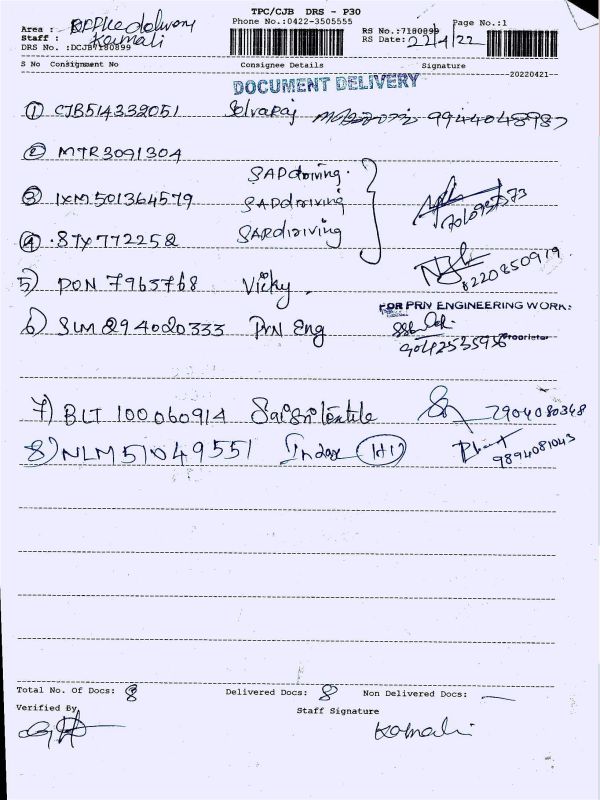 TPC/CJB DRS - P30
Phone No.:0422-3505555
Page No.:1
Area : office delivery
Staff : Komali
DRS No. :DCJB7180899
RS No.:7180899
RS Date: 22/4/22
S No Consignment No Consignee Details Signature
-20220421-
DOCUMENT DELIVERY
① CJB514332051 Selvaraj 9944048987
② MTR3091304 SAPdriving.
③ IXM501364579 SAPdriving 7010937573
④ .STX772252 SAPdriving
5) PON 7965768 Vicky. 8220850919
FOR PRN ENGINEERING WORKS
6) SLM294020333 PRN Eng
9042535936 Proprietor
7) BLT 100060914 Sai Sri Textile 7904080348
8) NLM51049551 Index (H1) 9894081043
Total No. Of Docs: 8 Delivered Docs: 8 Non Delivered Docs: —
Verified By Staff Signature
Komali